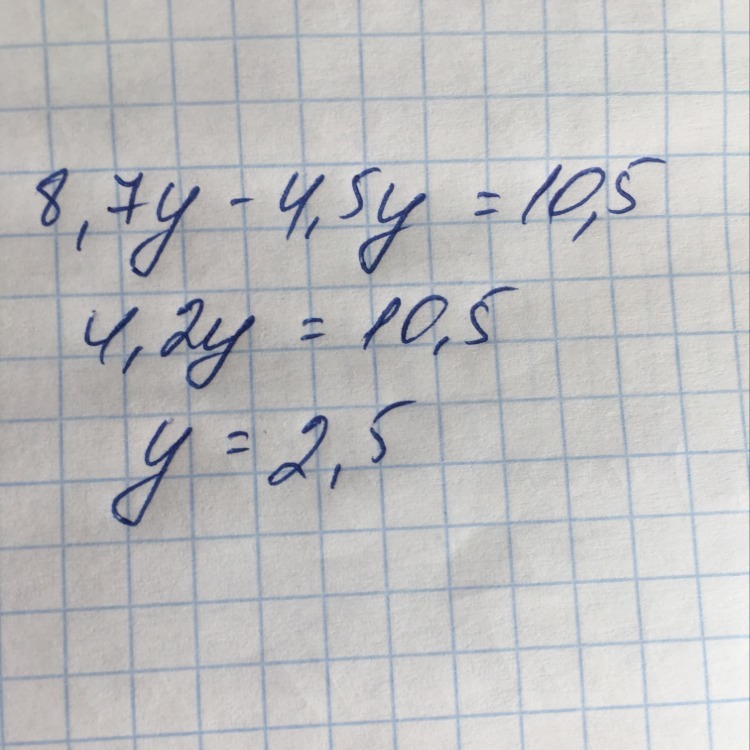 8,7y - 4,5y = 10,5
4,2y = 10,5
y = 2,5